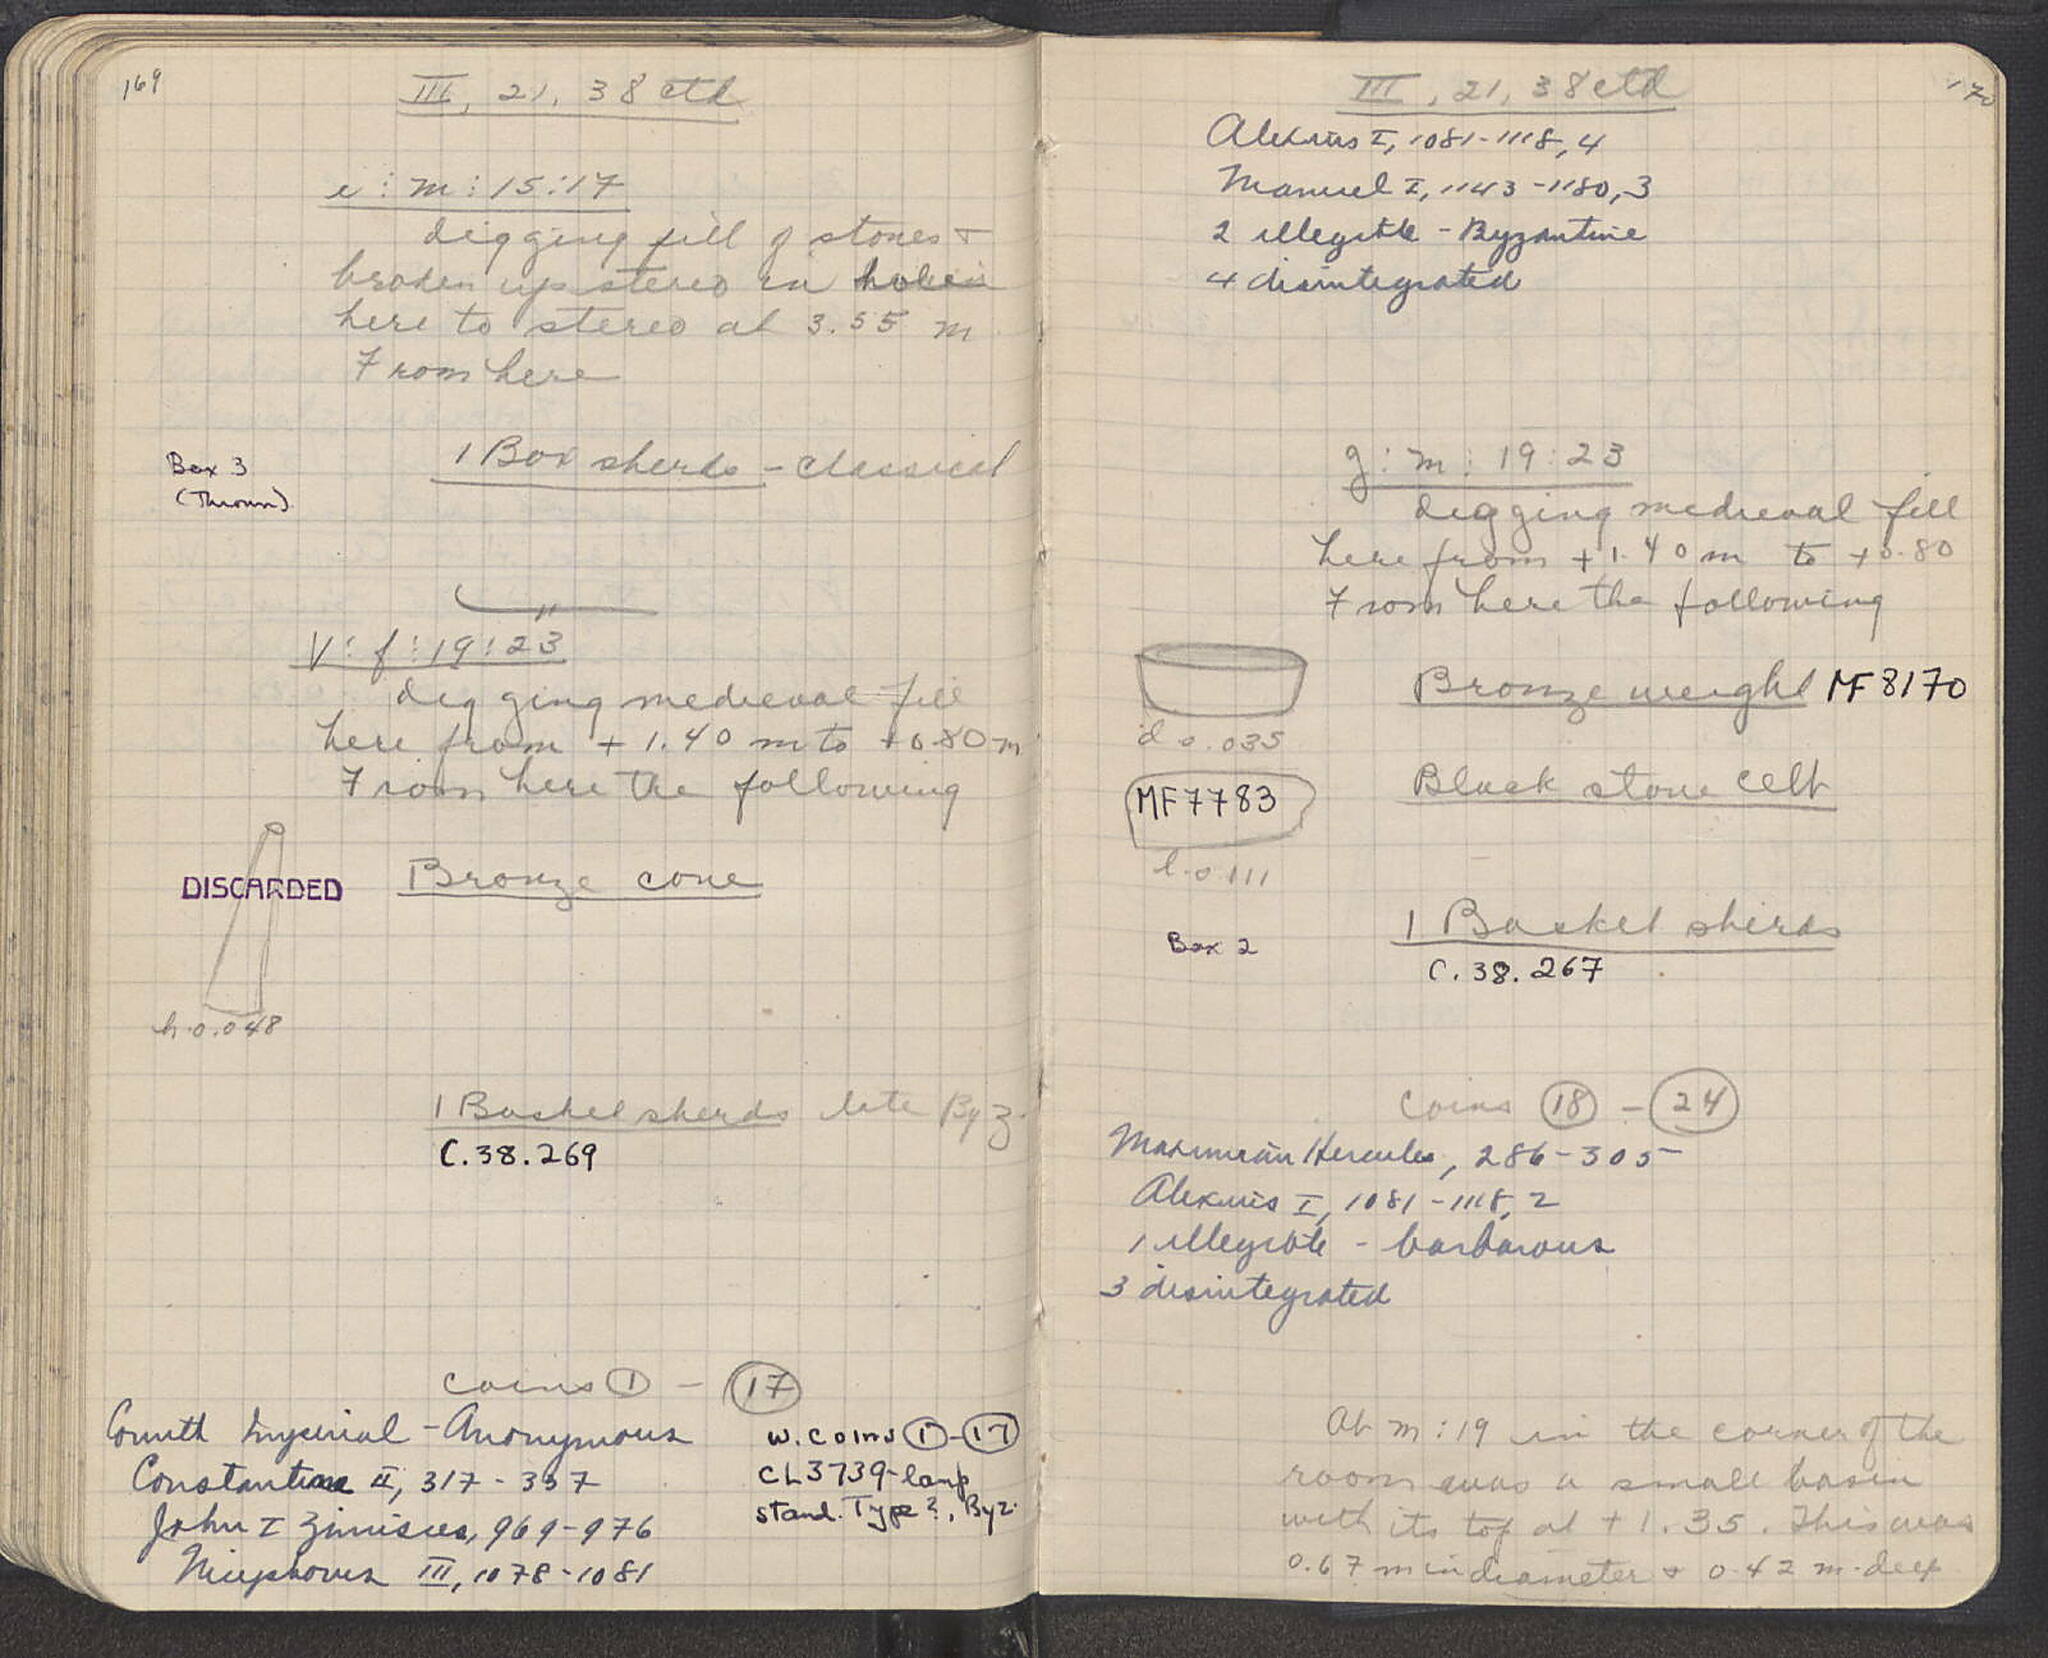 169
III, 21, 38 ctd
e : m : 15 : 17
digging fill of stones &
broken up stereo in
here to stereo at 3.55 m
From here
Box 3
(Thrown)
1 Box sherds - classical
V : f : 19 : 23
digging medieval fill
here from + 1.40 m to +0.80 m
From here the following
DISCARDED
Bronze cone
h. 0.048
1 Basket sherds late Byz.
C.38.269
coins 1 - 17
Corinth Imperial - Anonymous
Constantine II, 317 - 337
John I Zimisces, 969-976
Nicephorus III, 1078-1081
w. coins 1 - 17
CL3739-lamp
stand. Type?, Byz.
170
III, 21, 38 ctd
Alexius I, 1081-1118, 4
Manuel I, 1143-1180, 3
2 illegible - Byzantine
4 disintegrated
g : m : 19 : 23
digging medieval fill
here from + 1.40 m to +0.80
From here the following
Bronze weight MF 8170
d 0.035
Black stone celt
MF 7783
l. 0.111
1 Basket sherds
Box 2
C.38.267
coins 18 - 24
Maximian Hercules, 286-305
Alexius I, 1081-1118, 2
1 illegible - barbarous
3 disintegrated
At m : 19 in the corner of the
room was a small basin
with its top at + 1.35. This was
0.67 m in diameter & 0.42 m. deep